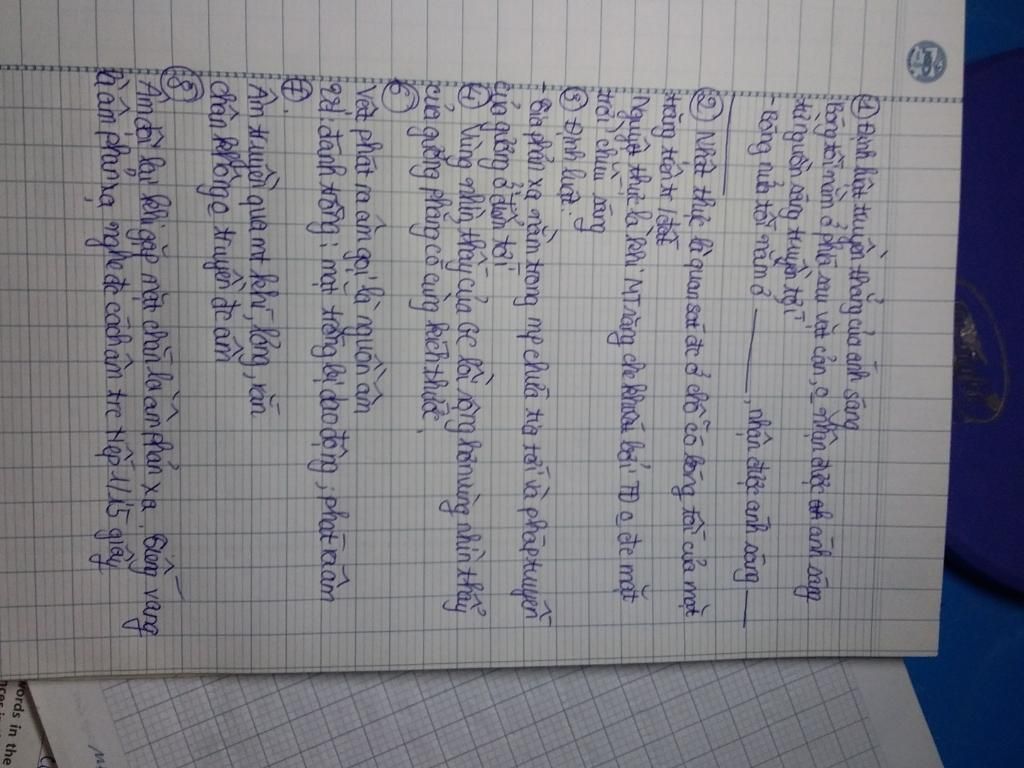 ① Định luật truyền thẳng của ánh sáng
- Bóng tối nằm ở phía sau vật cản, o nhận được ánh sáng
từ nguồn sáng truyền tới
- Bóng nửa tối nằm ở ———, nhận được ánh sáng ——
② Nhật thực là quan sát đc ở chỗ có bóng tối của mặt
trăng trên trái đất
Nguyệt thực là khi MTrăng che khuất bởi TĐ o đc mặt
trời chiếu sáng
③ Định luật:
- Tia phản xạ nằm trong mp chứa tia tới và pháp tuyến
của gương ở điểm tới
④ Vùng nhìn thấy của GC lồi rộng hơn vùng nhìn thấy
của gương phẳng có cùng kích thước.
⑥
Vật phát ra âm gọi là nguồn âm
Vd: đánh trống; mặt trống bị dao động; phát ra âm
⑦.
Âm truyền qua mt khí, lỏng, rắn
Chân không o truyền đc âm
⑧
Âm dội lại khi gặp mặt chắn là âm phản xạ. Tiếng vang
là âm phản xạ nghe đc cách âm trc tiếp 1/15 giây
ords in the